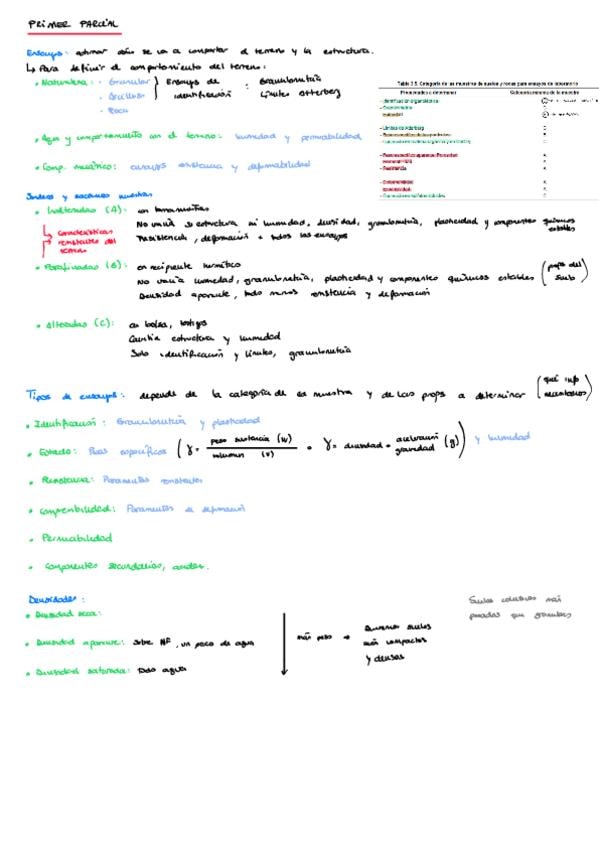 PRIMER PARCIAL
Ensayos: estimar cómo se va a comportar el terreno y la estructura.
↳ Para definir el comportamiento del terreno:
• Naturaleza: - Granular
- Arcilloso
- Roca
Ensayos de identificación : Granulometría
Límites Atterberg
• Agua y comportamiento con el terreno: humedad y permeabilidad
• Comp. mecánico: ensayos resistencia y deformabilidad
Tabla 3.5. Categoría de las muestras de suelos y rocas para ensayos de laboratorio
Sondeos y sacamos muestras
• Inalteradas (A): en tomamuestras
No varía ni estructura ni humedad, densidad, granulometría, plasticidad y componentes químicos estables
Resistencia, deformación + todos los ensayos
↳ características resistentes del terreno
• Parafinadas (B): en recipiente hermético
No varía humedad, granulometría, plasticidad y componentes químicos estables (props del suelo)
Densidad aparente, todo menos resistencia y deformación
• Alteradas (C): en bolsa, testigos
Cambia estructura y humedad
Solo identificación y límites, granulometría
Tipos de ensayos: depende de la categoría de la muestra y de las props a determinar (qué info necesitamos)
• Identificación: Granulometría y plasticidad
• Estado: Pesos específicos (γ = peso sustancia (W) / volumen (V) o γ = densidad · aceleración gravedad (g)) y humedad
• Resistencia: Parámetros resistentes
• Compresibilidad: Parámetros de deformación
• Permeabilidad
• Componentes secundarios, andan.
Densidades:
• Densidad seca:
• Densidad aparente: sobre NF, un poco de agua
• Densidad saturada: todo agua
más peso → Buenos suelos
más compactos
y densos
Suelos cohesivos más
pesados que granulares